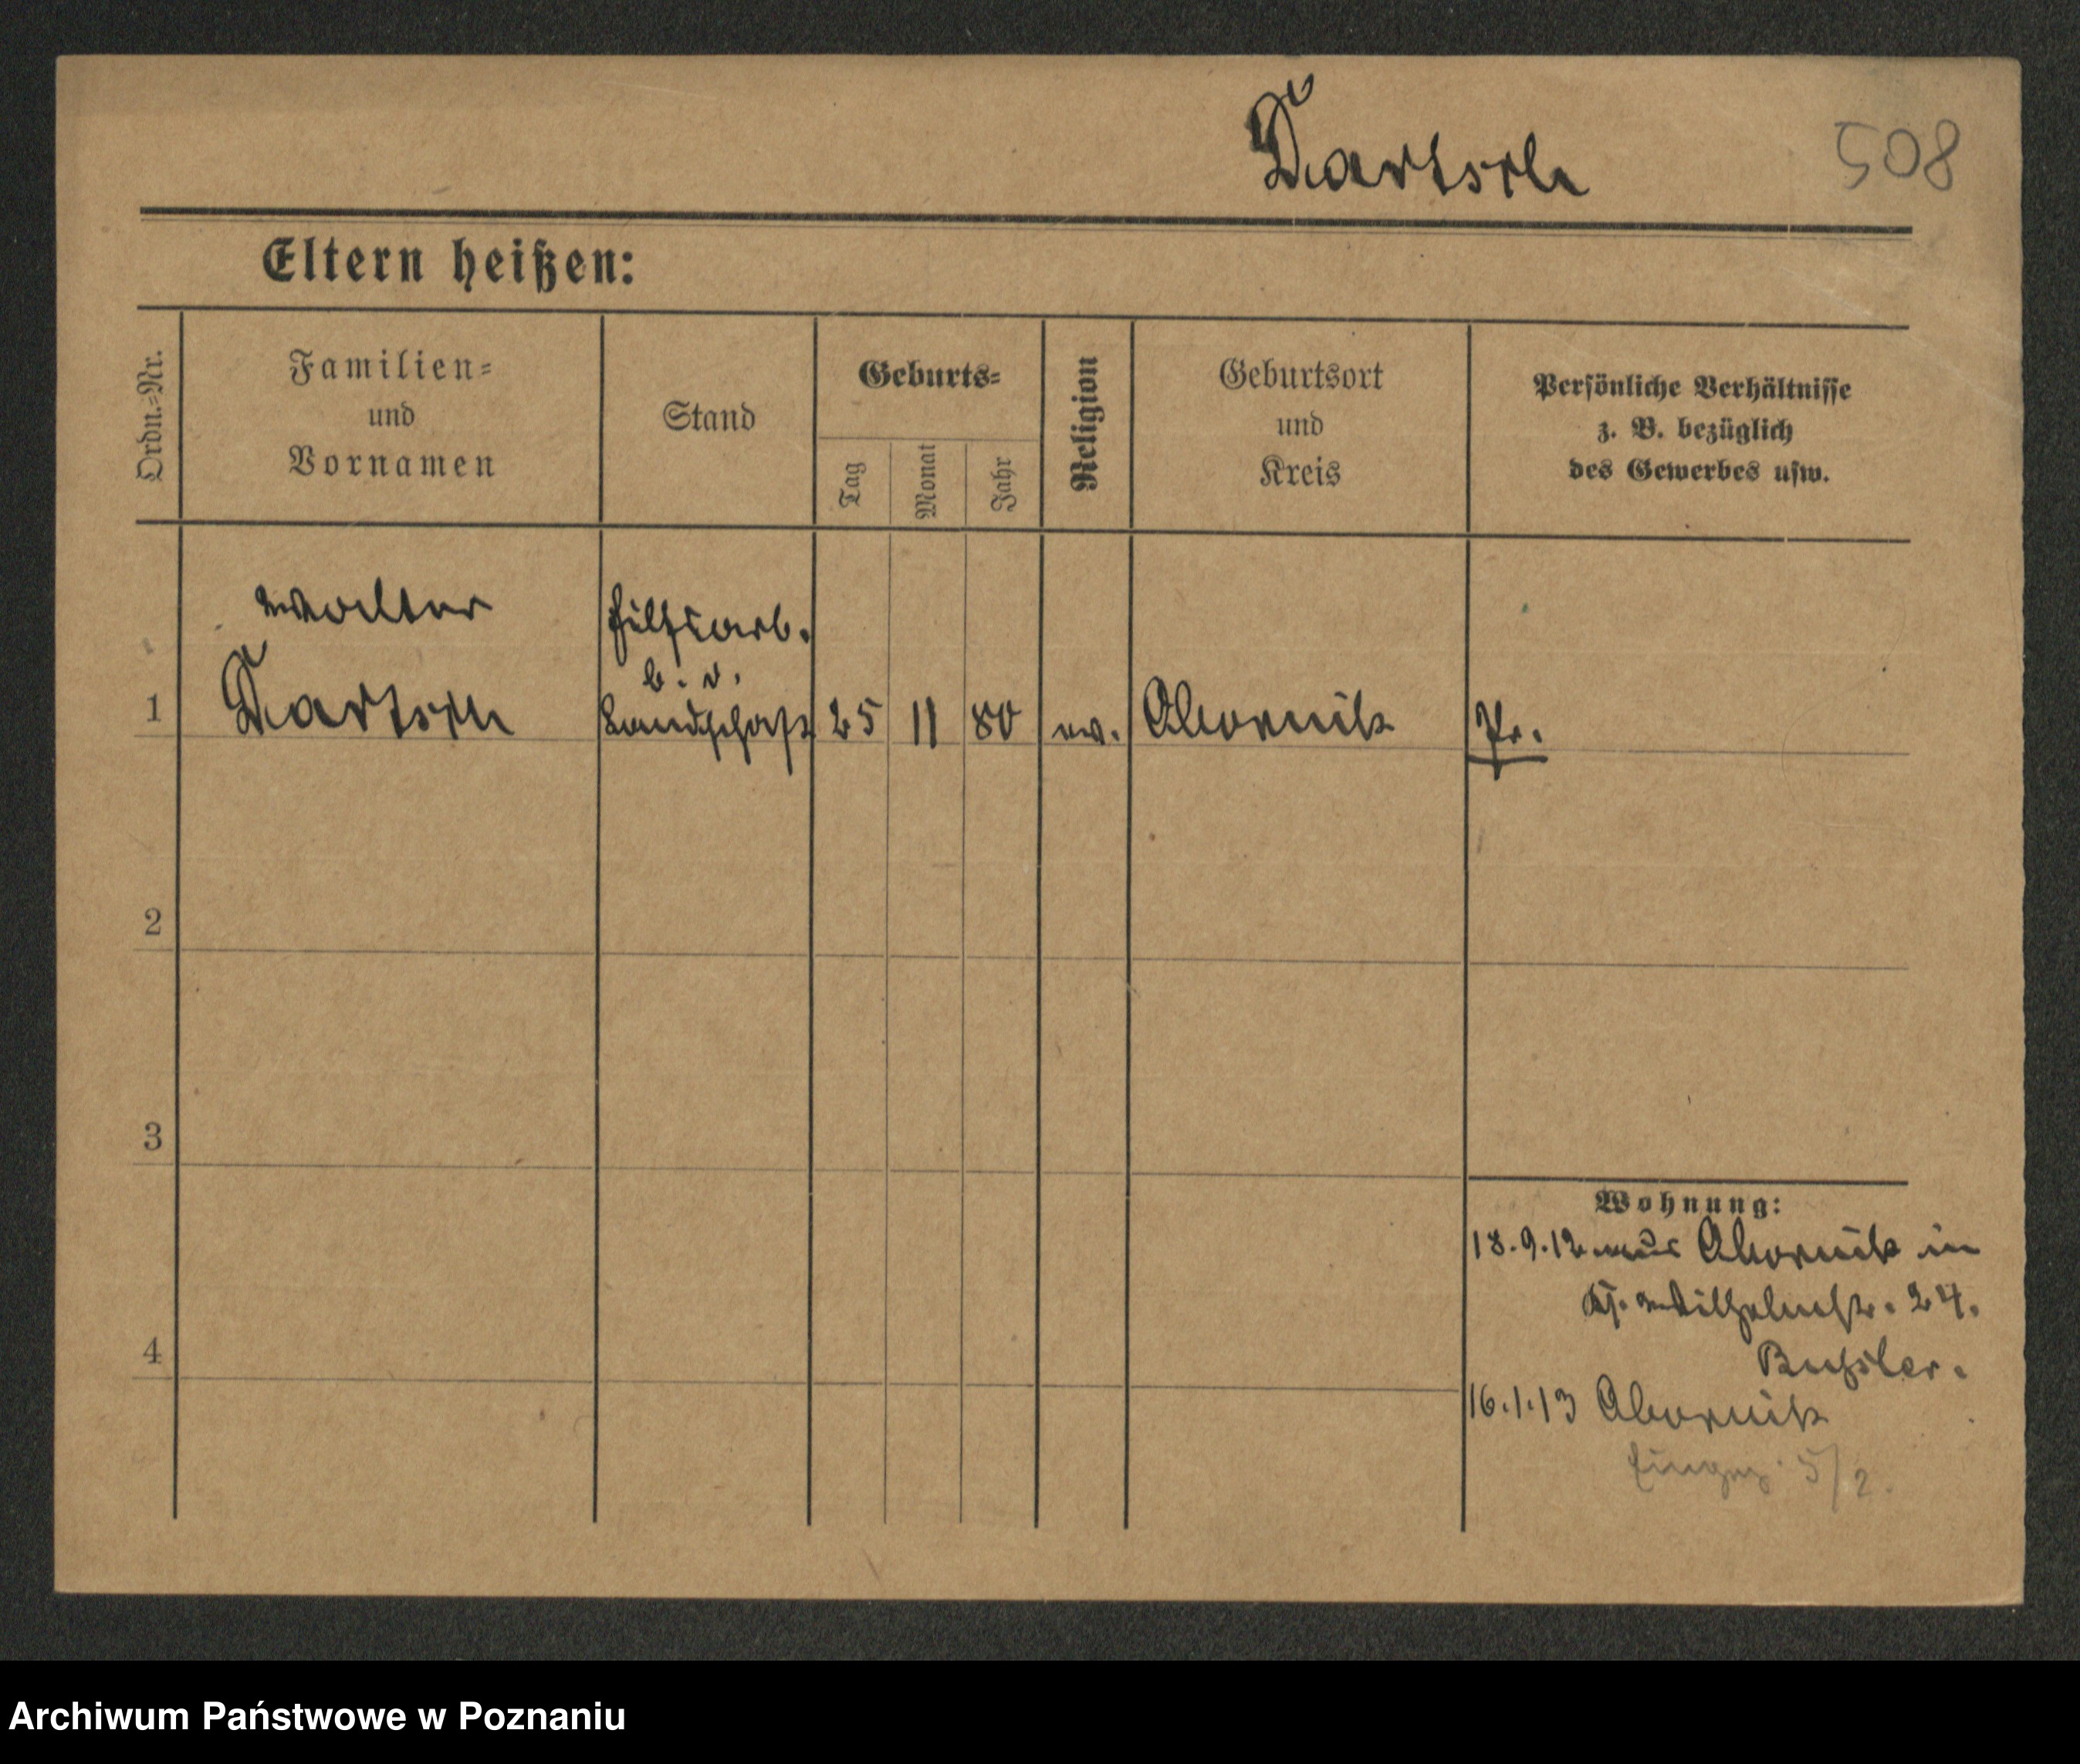 Bartsch 508
Eltern heißen:
Ordn.-Nr.
Familien-
und
Vornamen
Stand
Geburts-
Tag
Monat
Jahr
Religion
Geburtsort
und
Kreis
Persönliche Verhältnisse
z. B. bezüglich
des Gewerbes usw.
Walter
Hilfsarb.
b. d.
1 Bartsch Landschaft 25 11 80 ev. Obornik Pr.
2
3
Wohnung:
18.9.12 aus Obornik in
Wilhelmstr. 24.
4
16.1.13 Obornik
5/2.
Archiwum Państwowe w Poznaniu